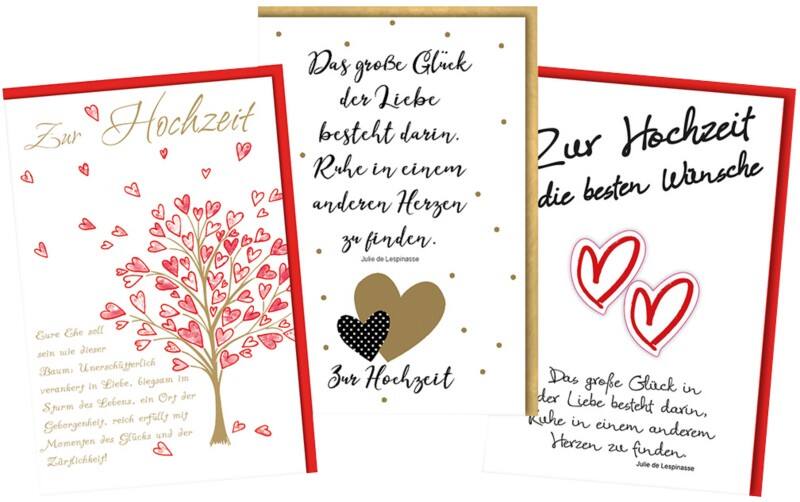 Zur Hochzeit
Eure Ehe soll
sein wie dieser
Baum: Unerschütterlich
verankert in Liebe, biegsam im
Sturm des Lebens, ein Ort der
Geborgenheit, reich erfüllt mit
Momenten des Glücks und der
Zärtlichkeit!
Das große Glück
der Liebe
besteht darin.
Ruhe in einem
anderen Herzen
zu finden.
Julie de Lespinasse
Zur Hochzeit
Zur Hochzeit
die besten Wünsche
Das große Glück in
der Liebe besteht darin,
Ruhe in einem anderem
Herzen zu finden.
Julie de Lespinasse